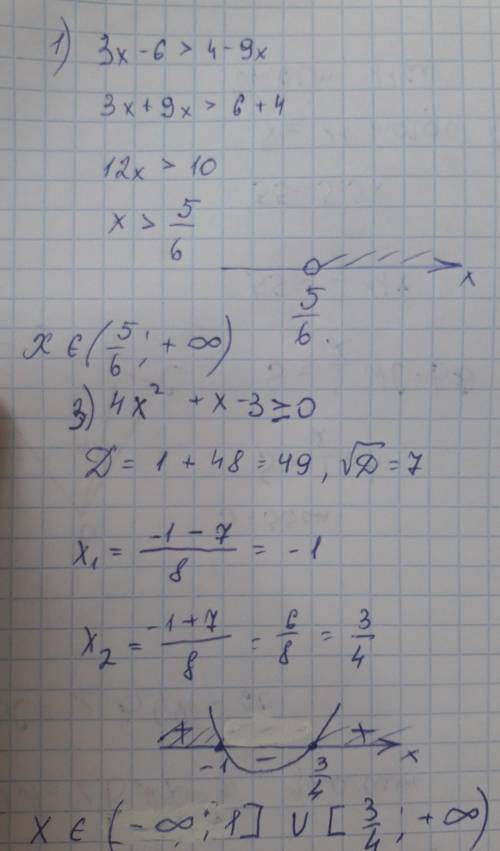 1) 3x - 6 > 4 - 9x
3x + 9x > 6 + 4
12x > 10
x > 5/6
x
5/6.
x ∈ (5/6; + ∞)
3) 4x² + x - 3 ≥ 0
D = 1 + 48 = 49, √D = 7
x₁ = (-1 - 7)/8 = -1
x₂ = (-1 + 7)/8 = 6/8 = 3/4
+ - + x
-1 3/4
x ∈ (-∞; 1] ∪ [3/4; + ∞)